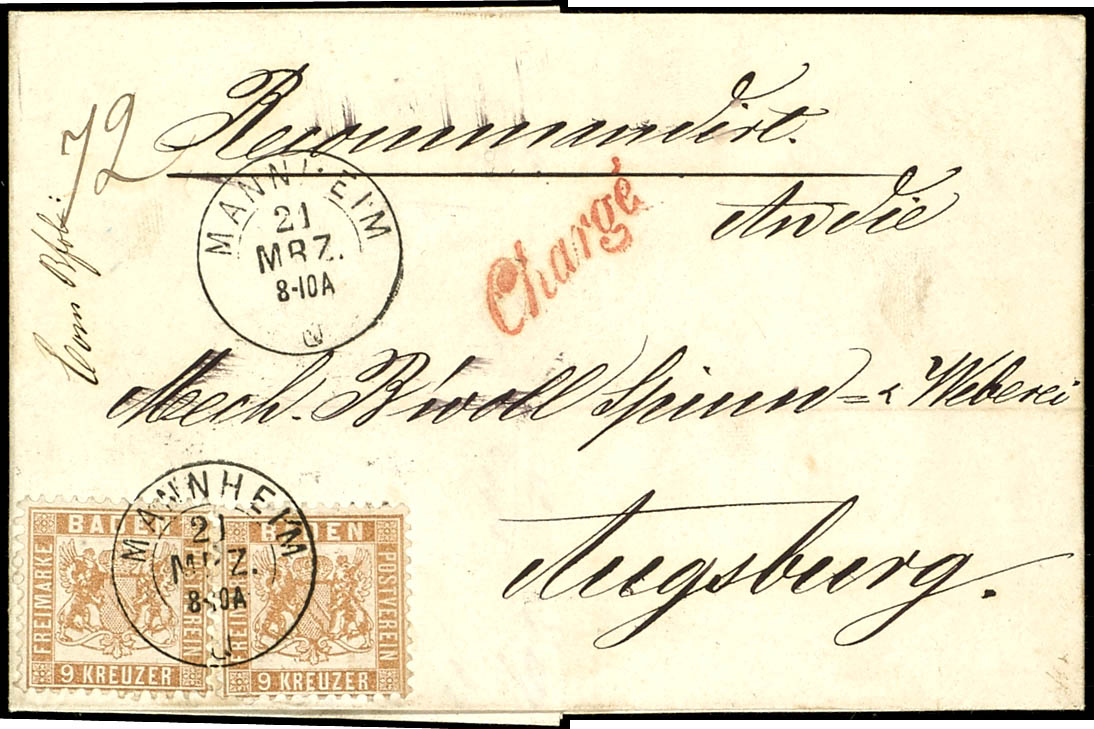 Recommandirt.
72
MANNHEIM
21
MRZ.
8-10A
Chargé
An die
Mech. B'woll Spinn= & Weberei
Augsburg.
MANNHEIM
21
MRZ.
8-10A
BADEN
FREIMARKE
POSTVEREIN
9 KREUZER
BADEN
FREIMARKE
POSTVEREIN
9 KREUZER